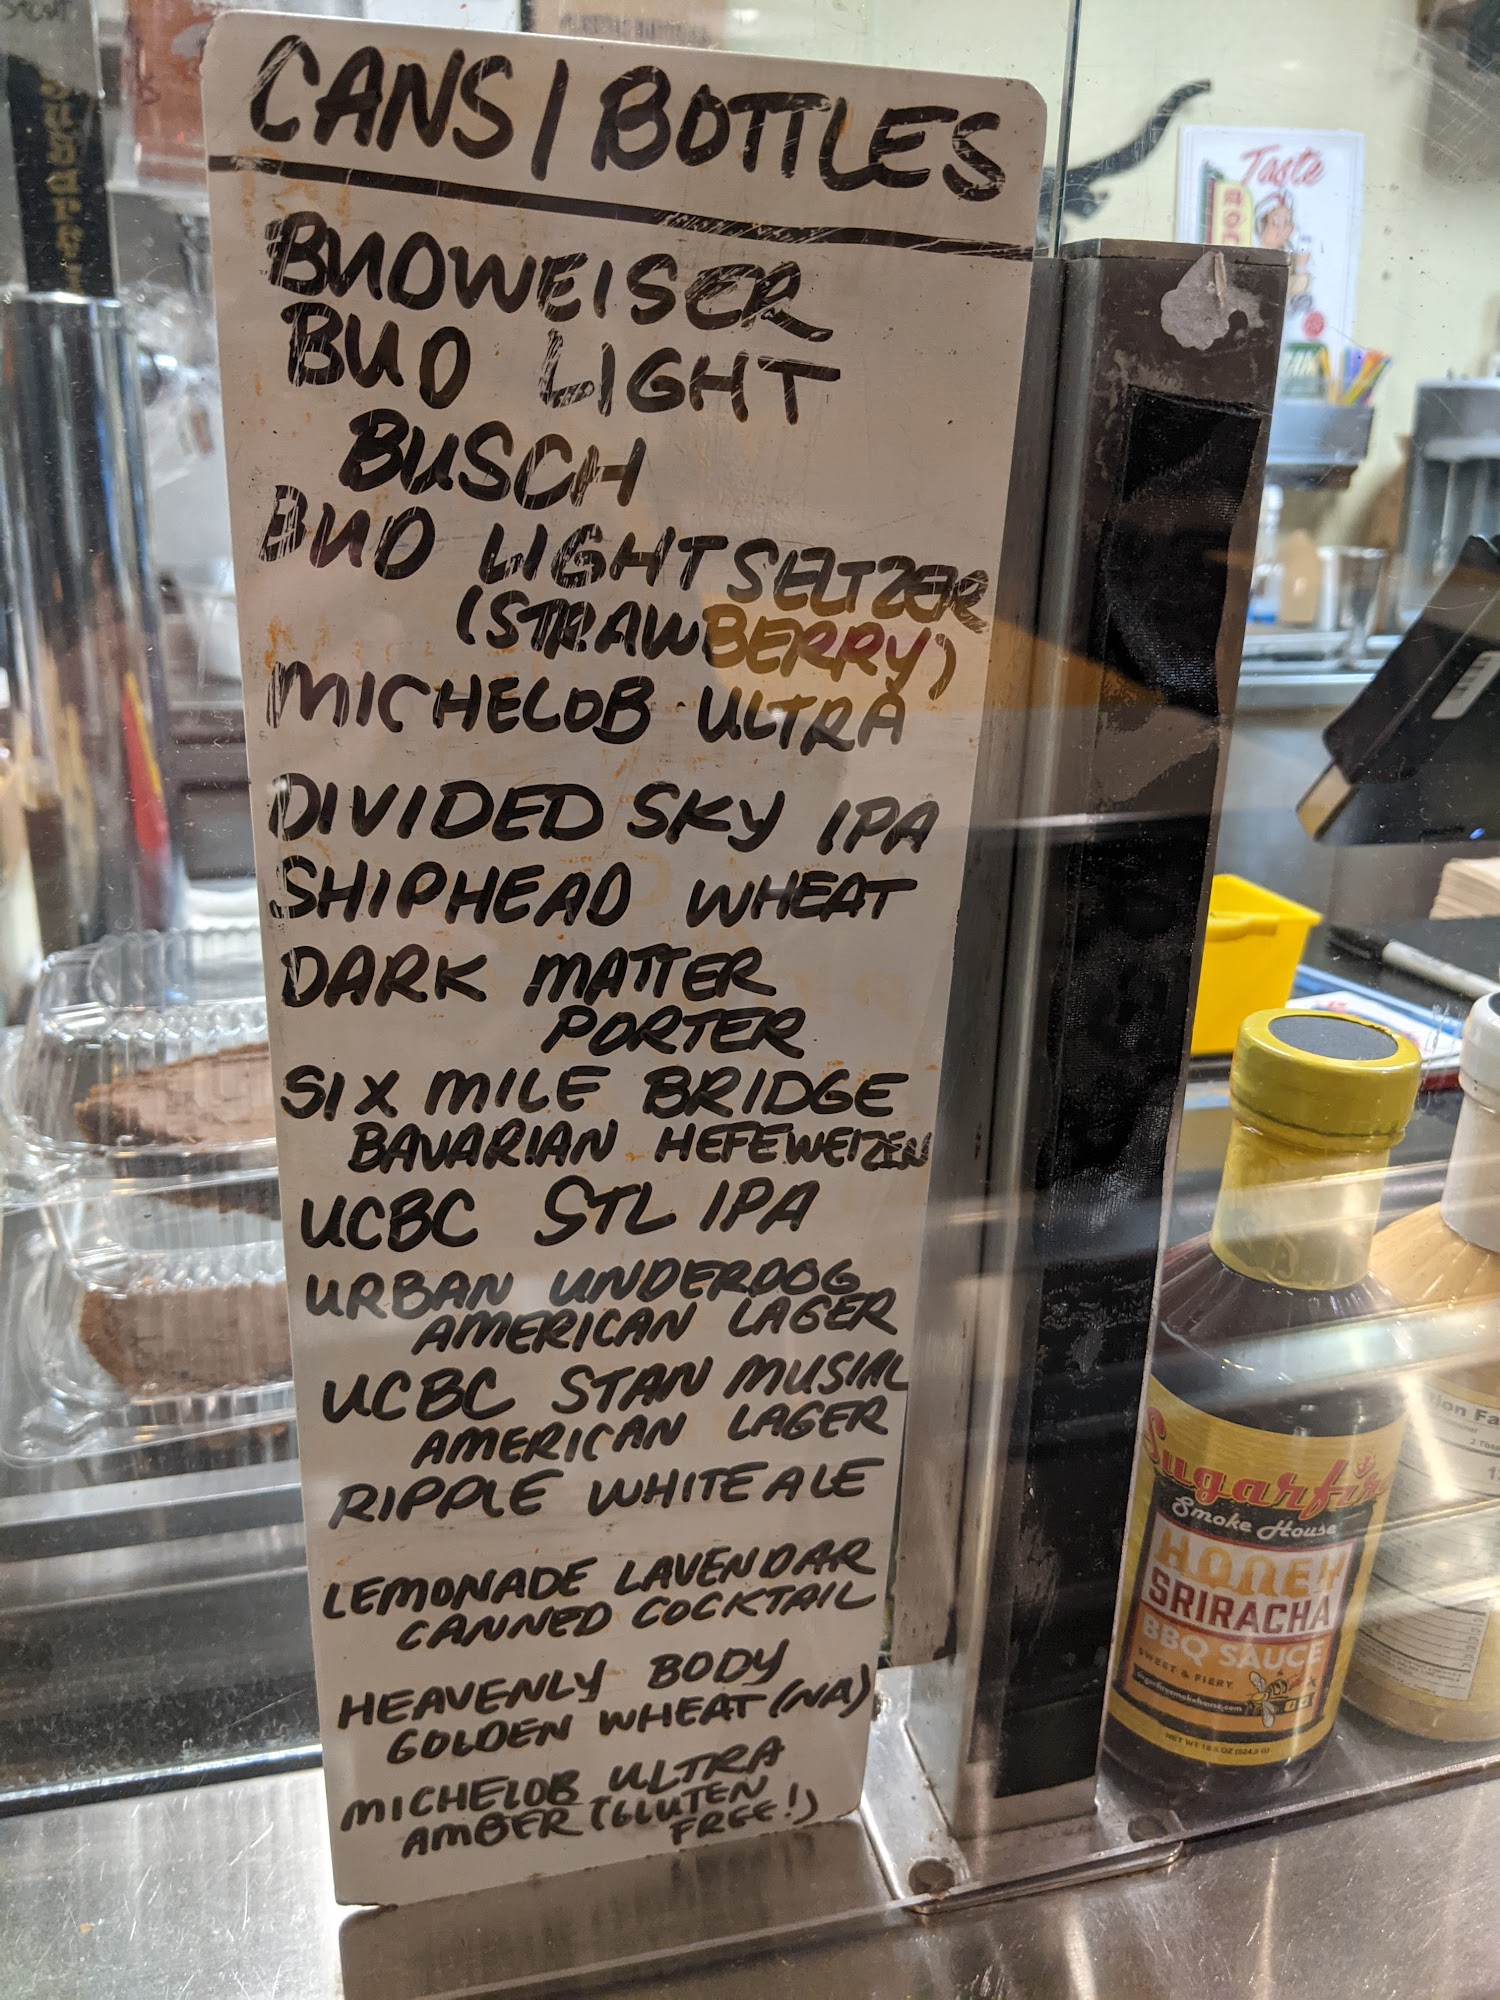 CANS / BOTTLES
BUDWEISER
BUD LIGHT
BUSCH
BUD LIGHT SELTZER
(STRAWBERRY)
MICHELOB ULTRA
DIVIDED SKY IPA
SHIPHEAD WHEAT
DARK MATTER
PORTER
SIX MILE BRIDGE
BAVARIAN HEFEWEIZEN
UCBC STL IPA
URBAN UNDERDOG
AMERICAN LAGER
UCBC STAN MUSIAL
AMERICAN LAGER
RIPPLE WHITE ALE
LEMONADE LAVENDAR
CANNED COCKTAIL
HEAVENLY BODY
GOLDEN WHEAT (NA)
MICHELOB ULTRA
AMBER (GLUTEN
FREE!)
Taste
Sugarfire
Smoke House
HONEY
SRIRACHA
BBQ SAUCE
SWEET & FIERY